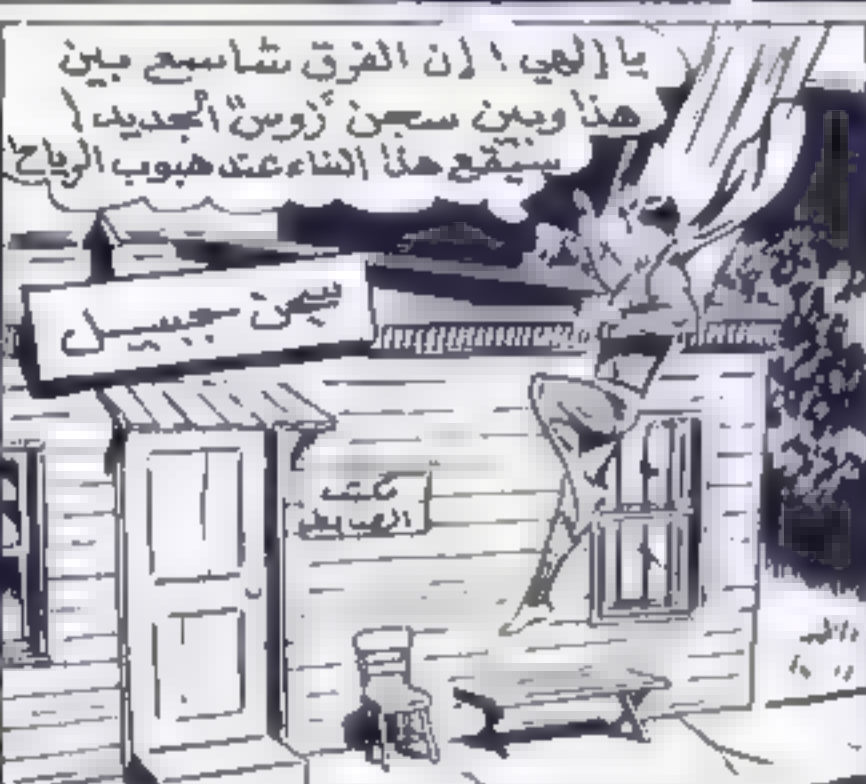 يا إلهي ! إن الفرق شاسع بين
هذا وبين سجن "زوس" الجديد !
سيقع هذا البناء عند هبوب الرياح
سجن
مكتب
الضابط